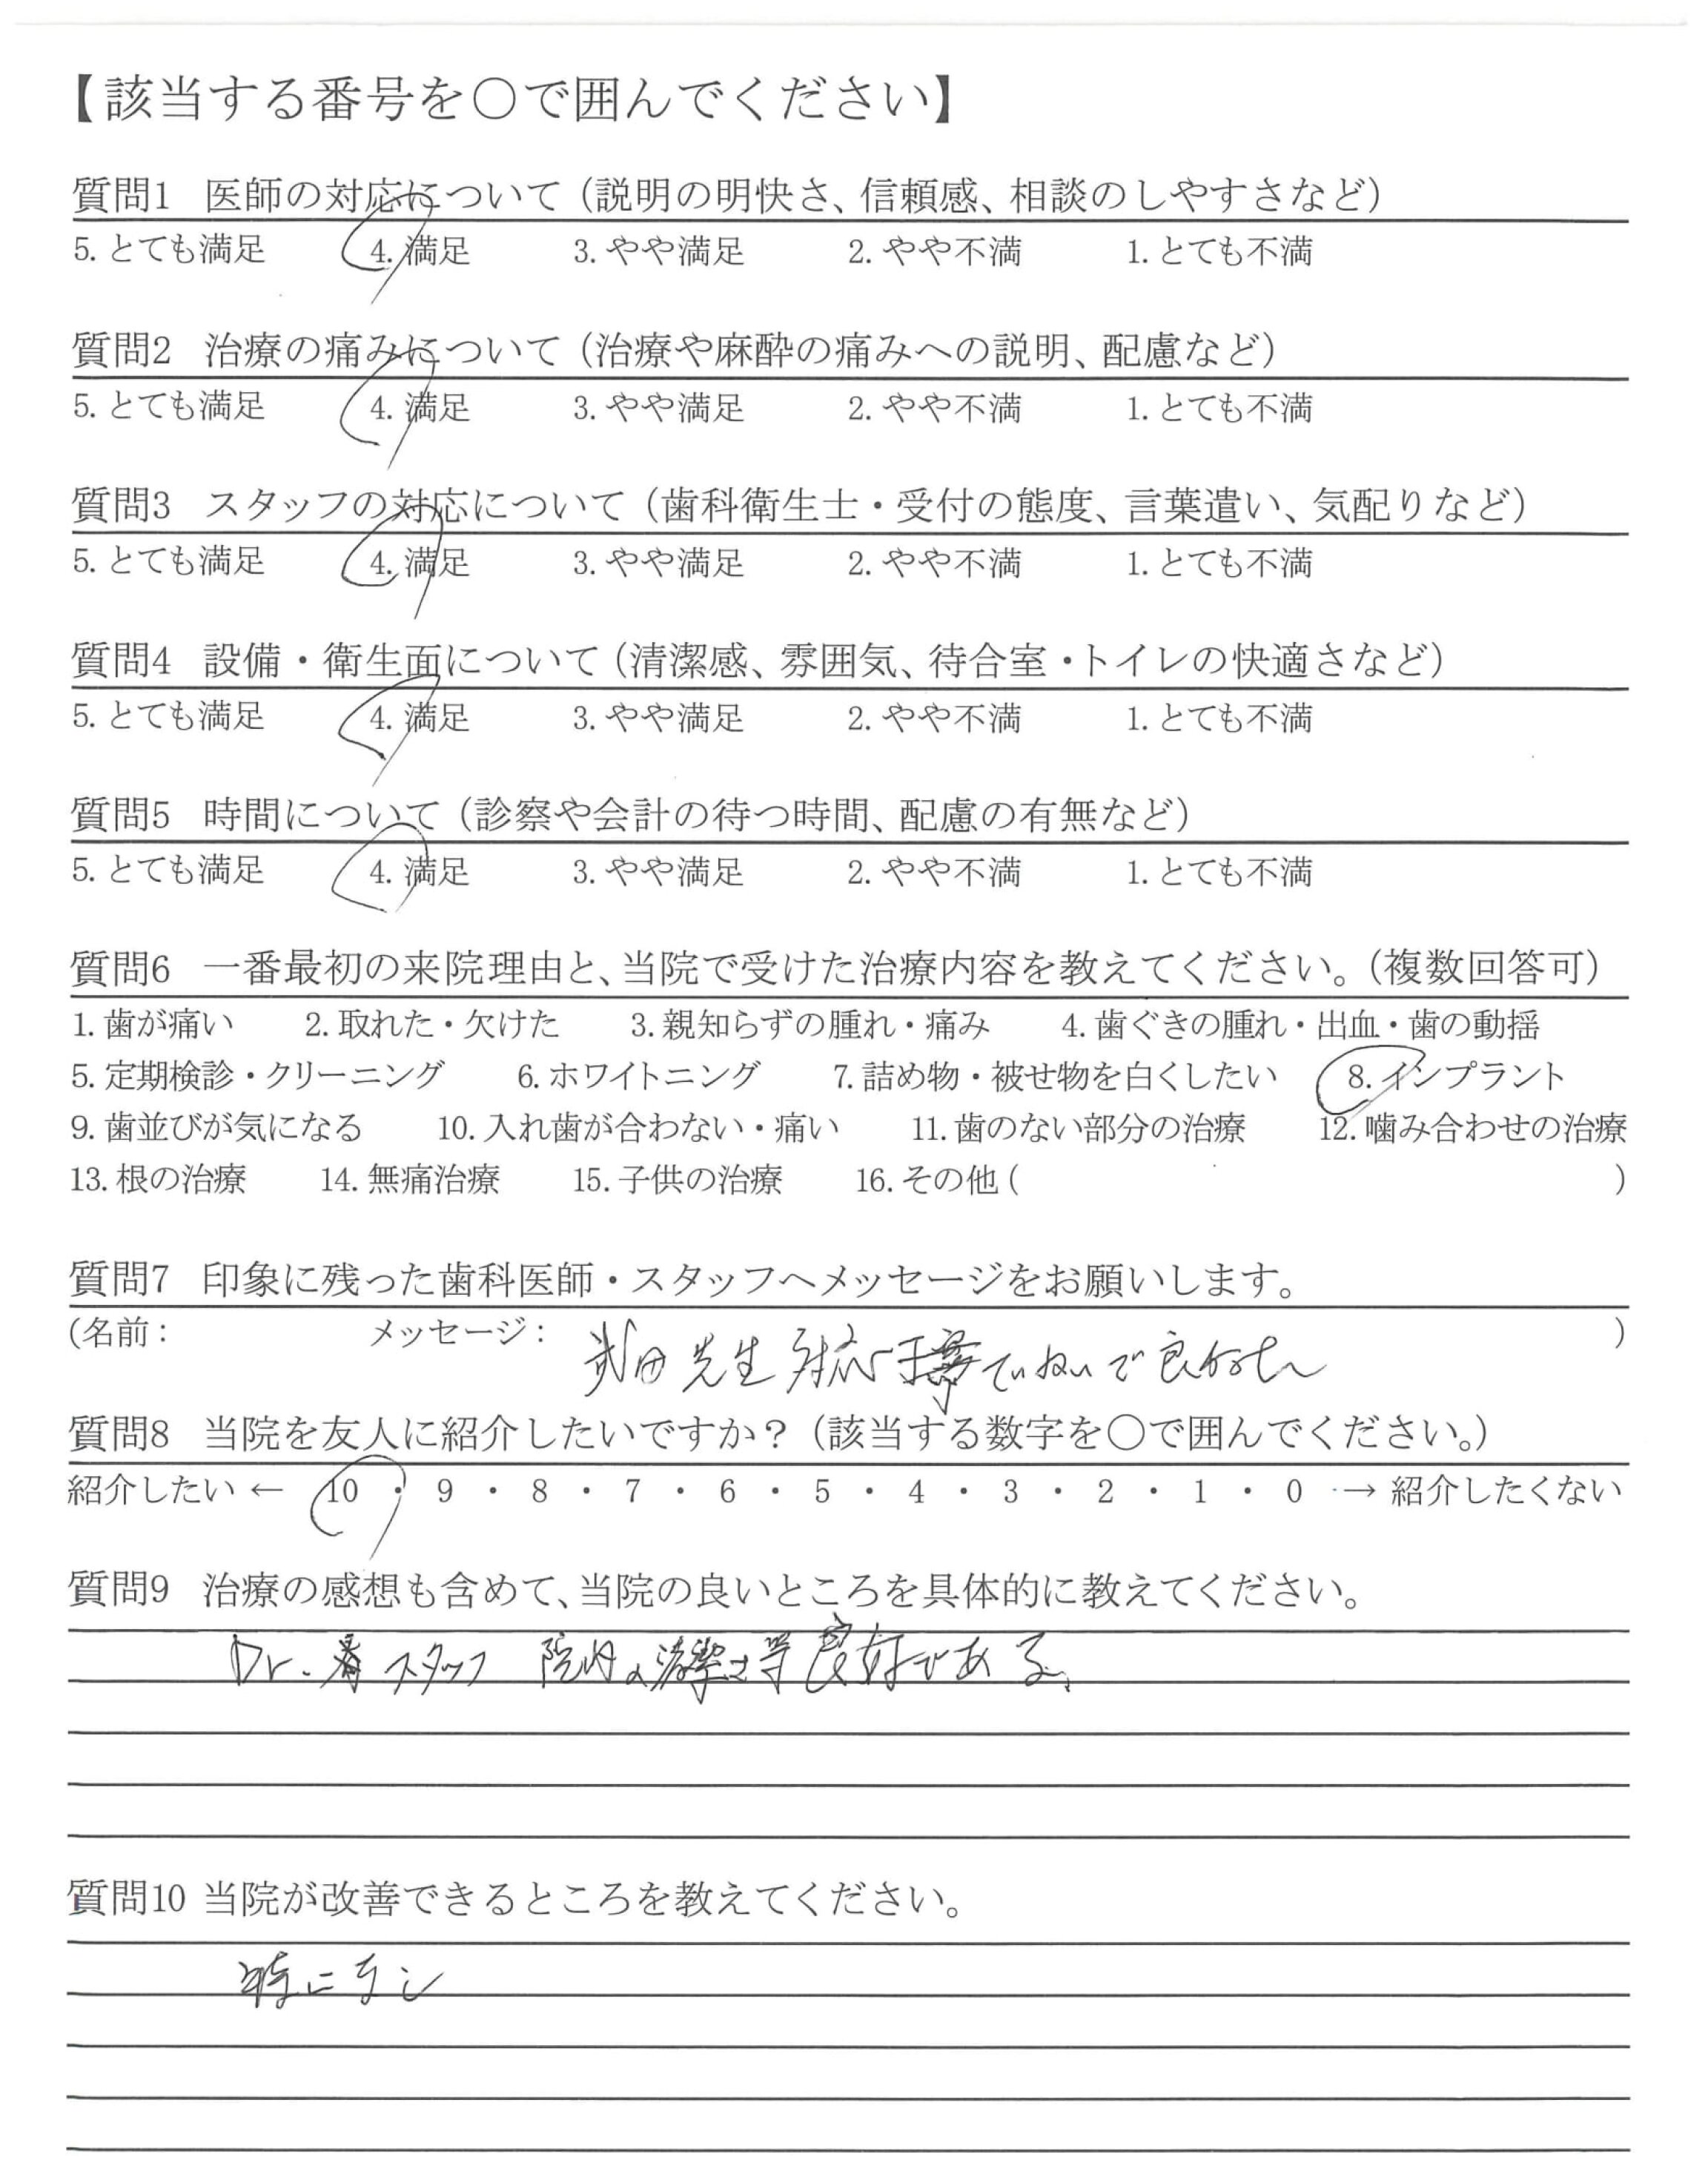 【該当する番号を〇で囲んでください】
質問1 医師の対応について（説明の明快さ、信頼感、相談のしやすさなど）
5. とても満足 4. 満足 3. やや満足 2. やや不満 1. とても不満
質問2 治療の痛みについて（治療や麻酔の痛みへの説明、配慮など）
5. とても満足 4. 満足 3. やや満足 2. やや不満 1. とても不満
質問3 スタッフの対応について（歯科衛生士・受付の態度、言葉遣い、気配りなど）
5. とても満足 4. 満足 3. やや満足 2. やや不満 1. とても不満
質問4 設備・衛生面について（清潔感、雰囲気、待合室・トイレの快適さなど）
5. とても満足 4. 満足 3. やや満足 2. やや不満 1. とても不満
質問5 時間について（診察や会計の待つ時間、配慮の有無など）
5. とても満足 4. 満足 3. やや満足 2. やや不満 1. とても不満
質問6 一番最初の来院理由と、当院で受けた治療内容を教えてください。（複数回答可）
1. 歯が痛い 2. 取れた・欠けた 3. 親知らずの腫れ・痛み 4. 歯ぐきの腫れ・出血・歯の動揺
5. 定期検診・クリーニング 6. ホワイトニング 7. 詰め物・被せ物を白くしたい 8. インプラント
9. 歯並びが気になる 10. 入れ歯が合わない・痛い 11. 歯のない部分の治療 12. 噛み合わせの治療
13. 根の治療 14. 無痛治療 15. 子供の治療 16. その他 ( )
質問7 印象に残った歯科医師・スタッフへメッセージをお願いします。
(名前： メッセージ： 先生 対応 ていねいで )
質問8 当院を友人に紹介したいですか？（該当する数字を〇で囲んでください。）
紹介したい ← 10 ・ 9 ・ 8 ・ 7 ・ 6 ・ 5 ・ 4 ・ 3 ・ 2 ・ 1 ・ 0 → 紹介したくない
質問9 治療の感想も含めて、当院の良いところを具体的に教えてください。
Dr. スタッフ 院内の 等 良好である。
質問10 当院が改善できるところを教えてください。
特になし